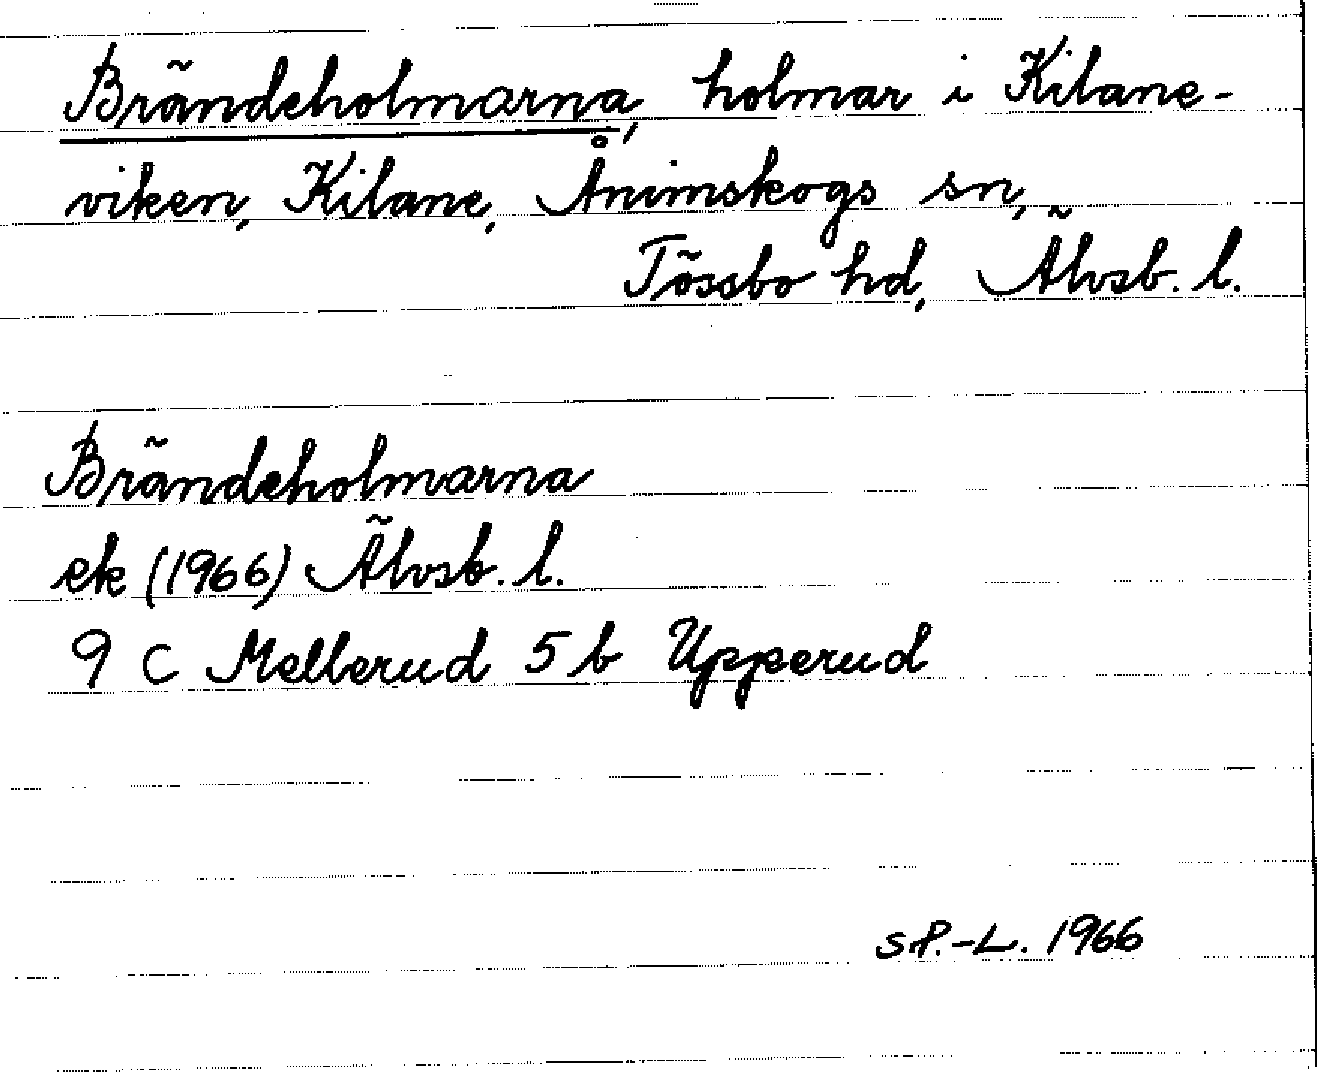 Brändeholmarna, holmar i Kilane-
viken, Kilane, Ånimskogs sn,
Tössbo hd, Älvsb. l.
Brändeholmarna
ek (1966) Älvsb. l.
9 C Mellerud 5 b Upperud
sP.-L. 1966